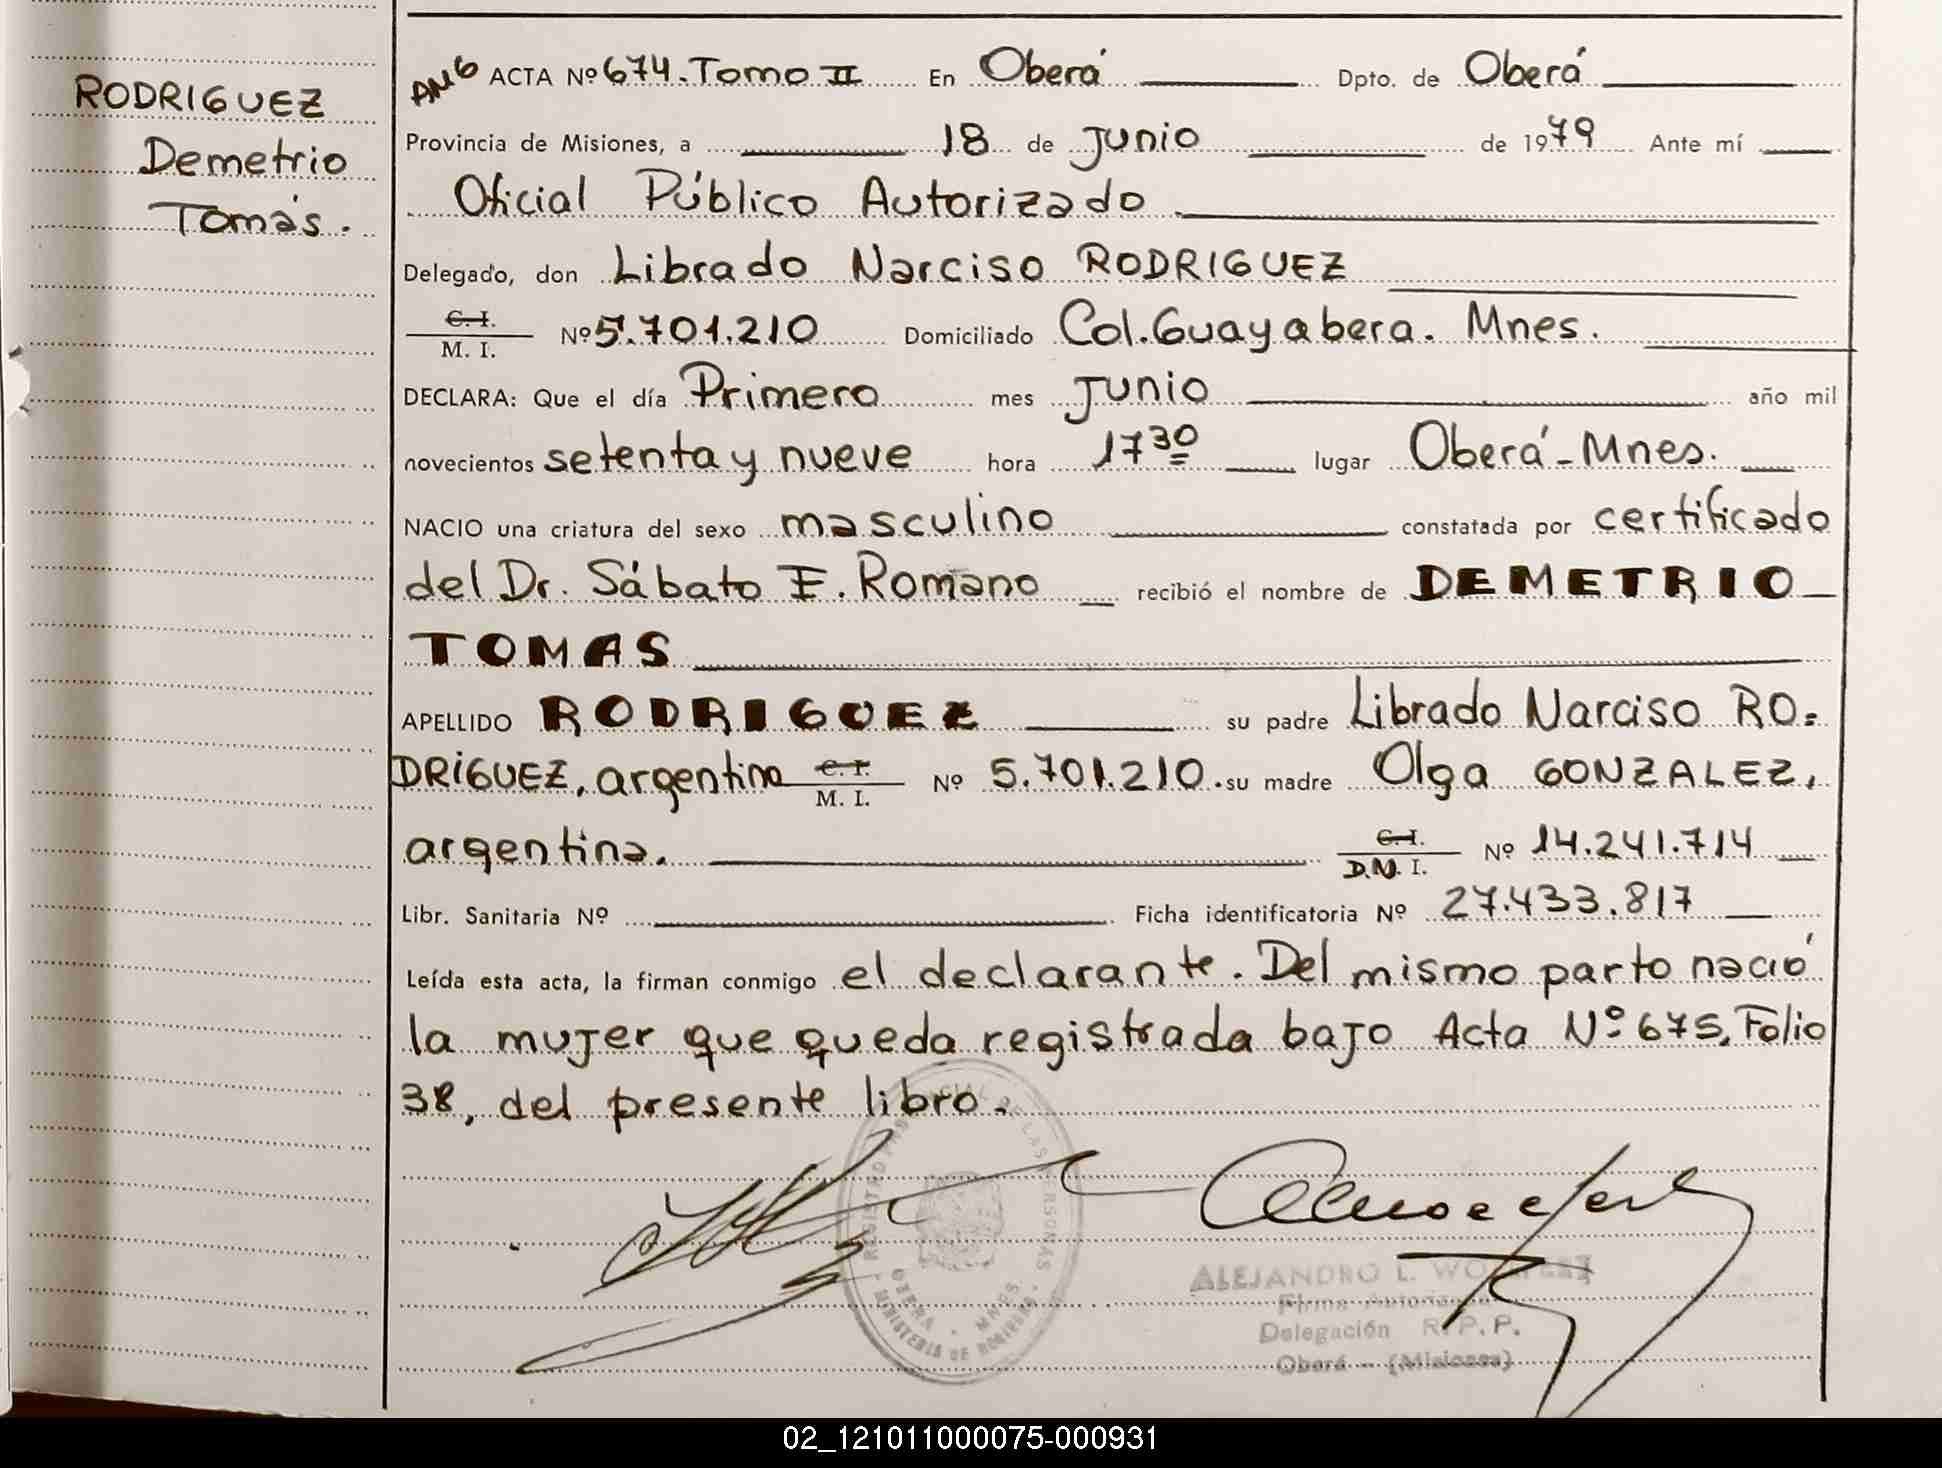 RODRIGUEZ
Demetrio
Tomás.
ACTA Nº 674. Tomo II En Oberá Dpto. de Oberá
Provincia de Misiones, a 18 de Junio de 1979 Ante mí
Oficial Público Autorizado
Delegado, don Librado Narciso RODRIGUEZ
C. I.
M. I. Nº 5.701.210 Domiciliado Col. Guayabera. Mnes.
DECLARA: Que el día Primero mes Junio año mil
novecientos setenta y nueve hora 17 30 lugar Oberá-Mnes.
NACIO una criatura del sexo masculino constatada por certificado
del Dr. Sábato F. Romano recibió el nombre de DEMETRIO
TOMAS
APELLIDO RODRIGUEZ su padre Librado Narciso RO=
DRIGUEZ, argentina C. I. M. I. Nº 5.701.210. su madre Olga GONZALEZ,
argentina. C. I. D.N. I. Nº 14.241.714
Libr. Sanitaria Nº Ficha identificatoria Nº 27.433.817
Leída esta acta, la firman conmigo el declarante. Del mismo parto nació
la mujer que queda registrada bajo Acta Nº 675, Folio
38, del presente libro.
ALEJANDRO L.
Firma
Delegación R. P. P.
Oberá - (Misiones)
02_121011000075-000931